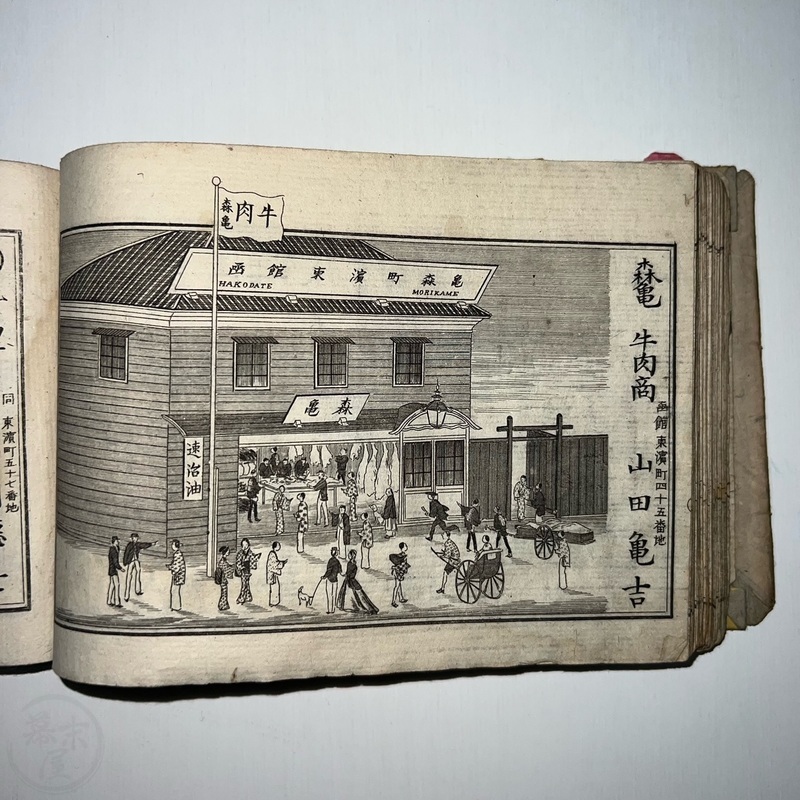 牛肉
森亀
函館東濱町森亀
HAKODATE MORIKAME
森亀
速治油
森亀 牛肉商 山田亀吉
函館東濱町四十五番地
同 東濱町五十七番地
幕末屋